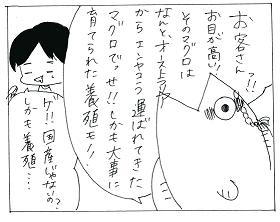 お客さんっ!!
お目が高い!
そのマグロは
なんと、オーストラリア
からエンヤコラ運ばれてきた
マグロでっせ!!しかも大事に
育てられた養殖モノ!
ゲ!!国産じゃないの?
しかも養殖…